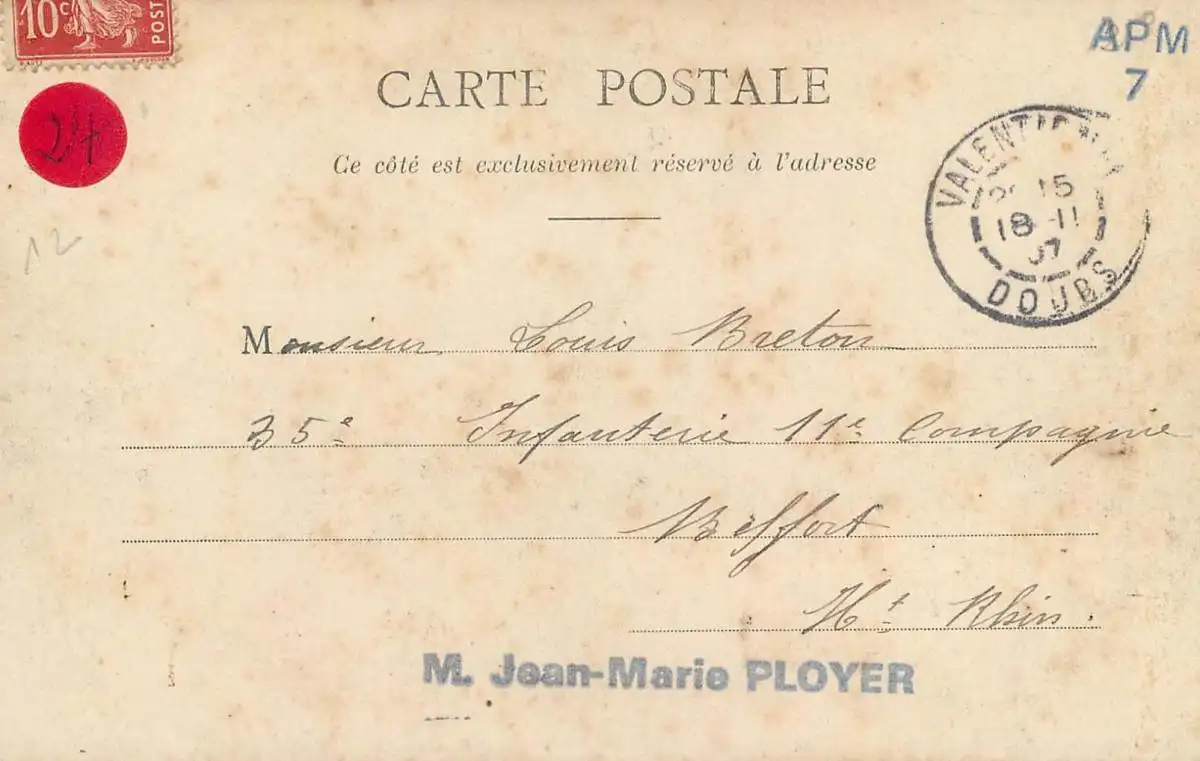 10c POST
APM
7
CARTE POSTALE
24
Ce côté est exclusivement réservé à l'adresse
12
15
18 -11
07
DOUBS
Monsieur Louis Breton
35e Infanterie 11e Compagnie
Belfort
Ht Rhin.
M. Jean-Marie PLOYER